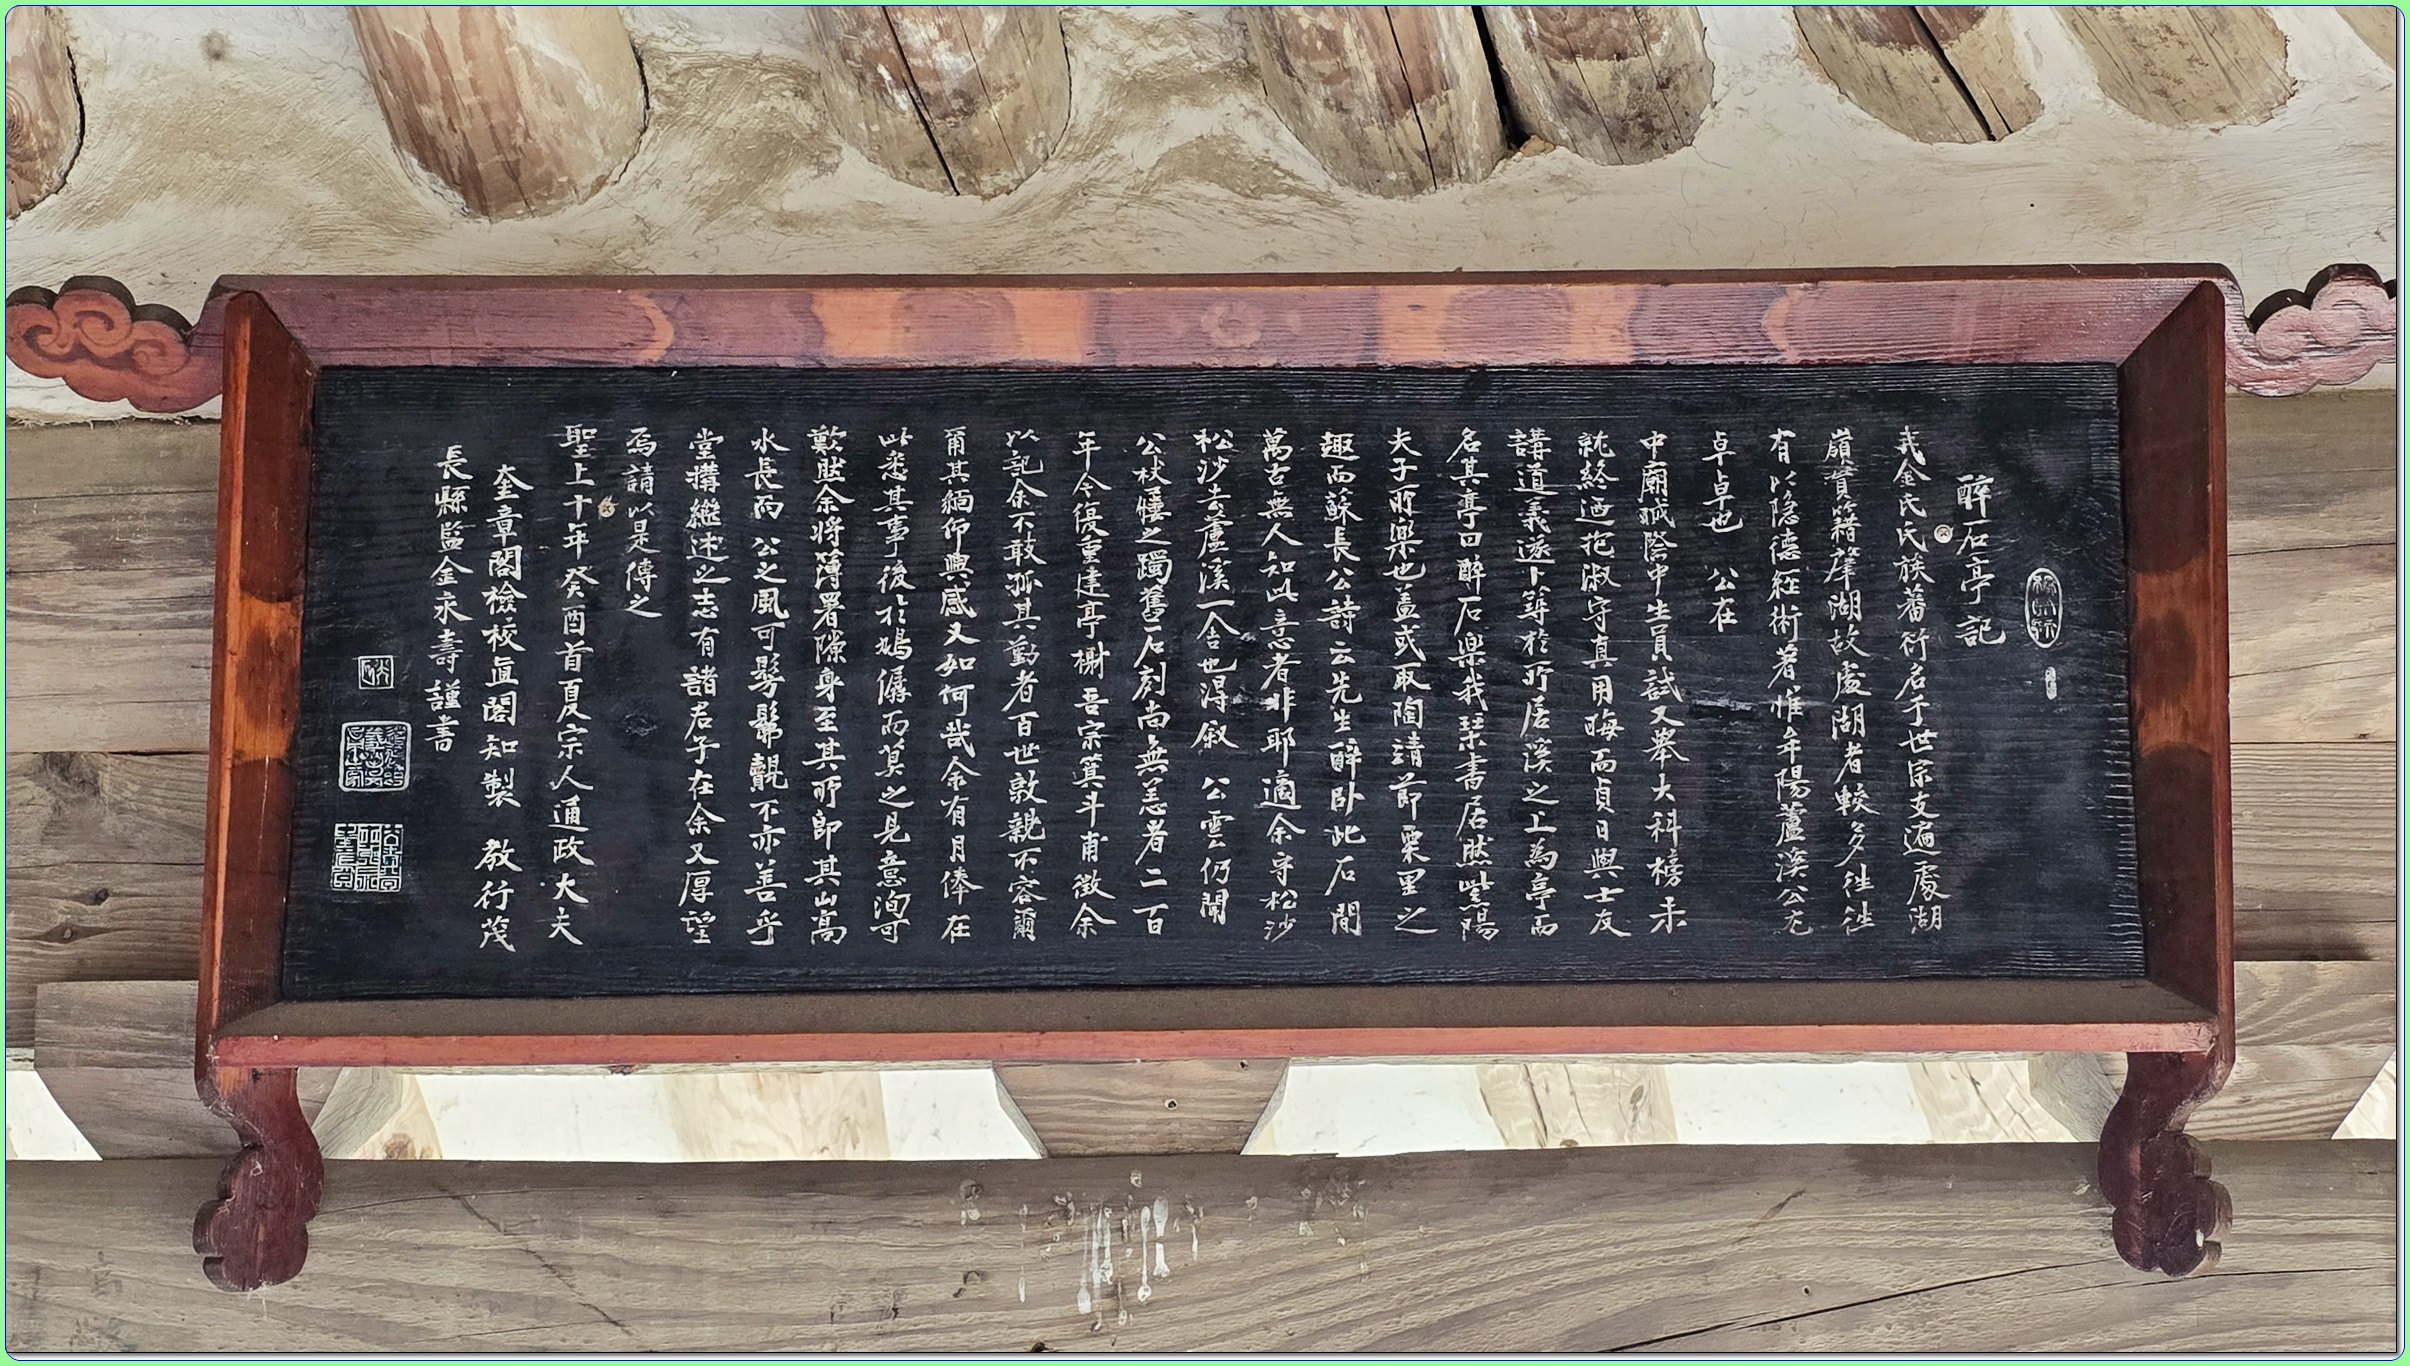 醉石亭記
我金氏氏族蕃衍名于世宗支遍處湖
嶺貫籍肇湖故處湖者較多徃徃
有以隐德経術著惟牟陽蘆溪公尤
卓卓也 公在
中廟戚際中生員試又擧大科榜未
就終迺抱淑守真用晦而貞日與士友
講道義遂卜築於所居溪之上為亭而
名其亭曰醉石樂我琹書居然紫陽
夫子所樂也盖或取陶靖節栗里之
趣而蘇長公詩云先生醉卧此石間
萬古無人知此意者非耶適余守松沙
松沙去蘆溪一舎也淂叙 公雲仍聞
公杖屨之躅舊石刻尚無恙者二百
年今復重建亭榭吾宗箕斗甫徵余
以記余不敢孤其勤者百世敦親不容爾
爾其緬仰興感又如何哉余有月俸在
此悉其事後於鳩僝而莫之見意洵可
歎然余将薄署隙身至其所即其山高
水長而 公之風可髣髴覩不亦善乎
堂搆継述之志有諸君子在余又厚望
焉請以是傳之
聖上十年癸酉首夏宗人通政大夫
奎章閣檢校直閣知製 教行茂
長縣監金永壽謹書